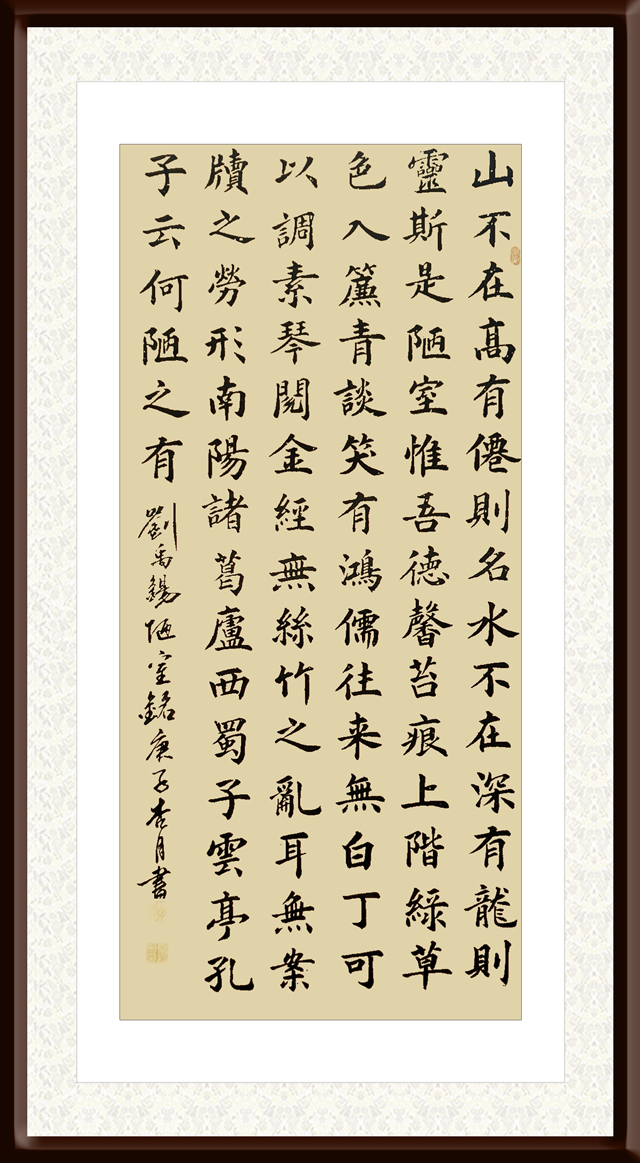 山不在髙有僊則名水不在深有龍則
靈斯是陋室惟吾德馨苔痕上階綠草
色入簾青談笑有鴻儒往来無白丁可
以調素琴閱金經無絲竹之亂耳無案
牘之勞形南陽諸葛廬西蜀子雲亭孔
子云何陋之有 劉禹錫陋室銘庚子杏月書